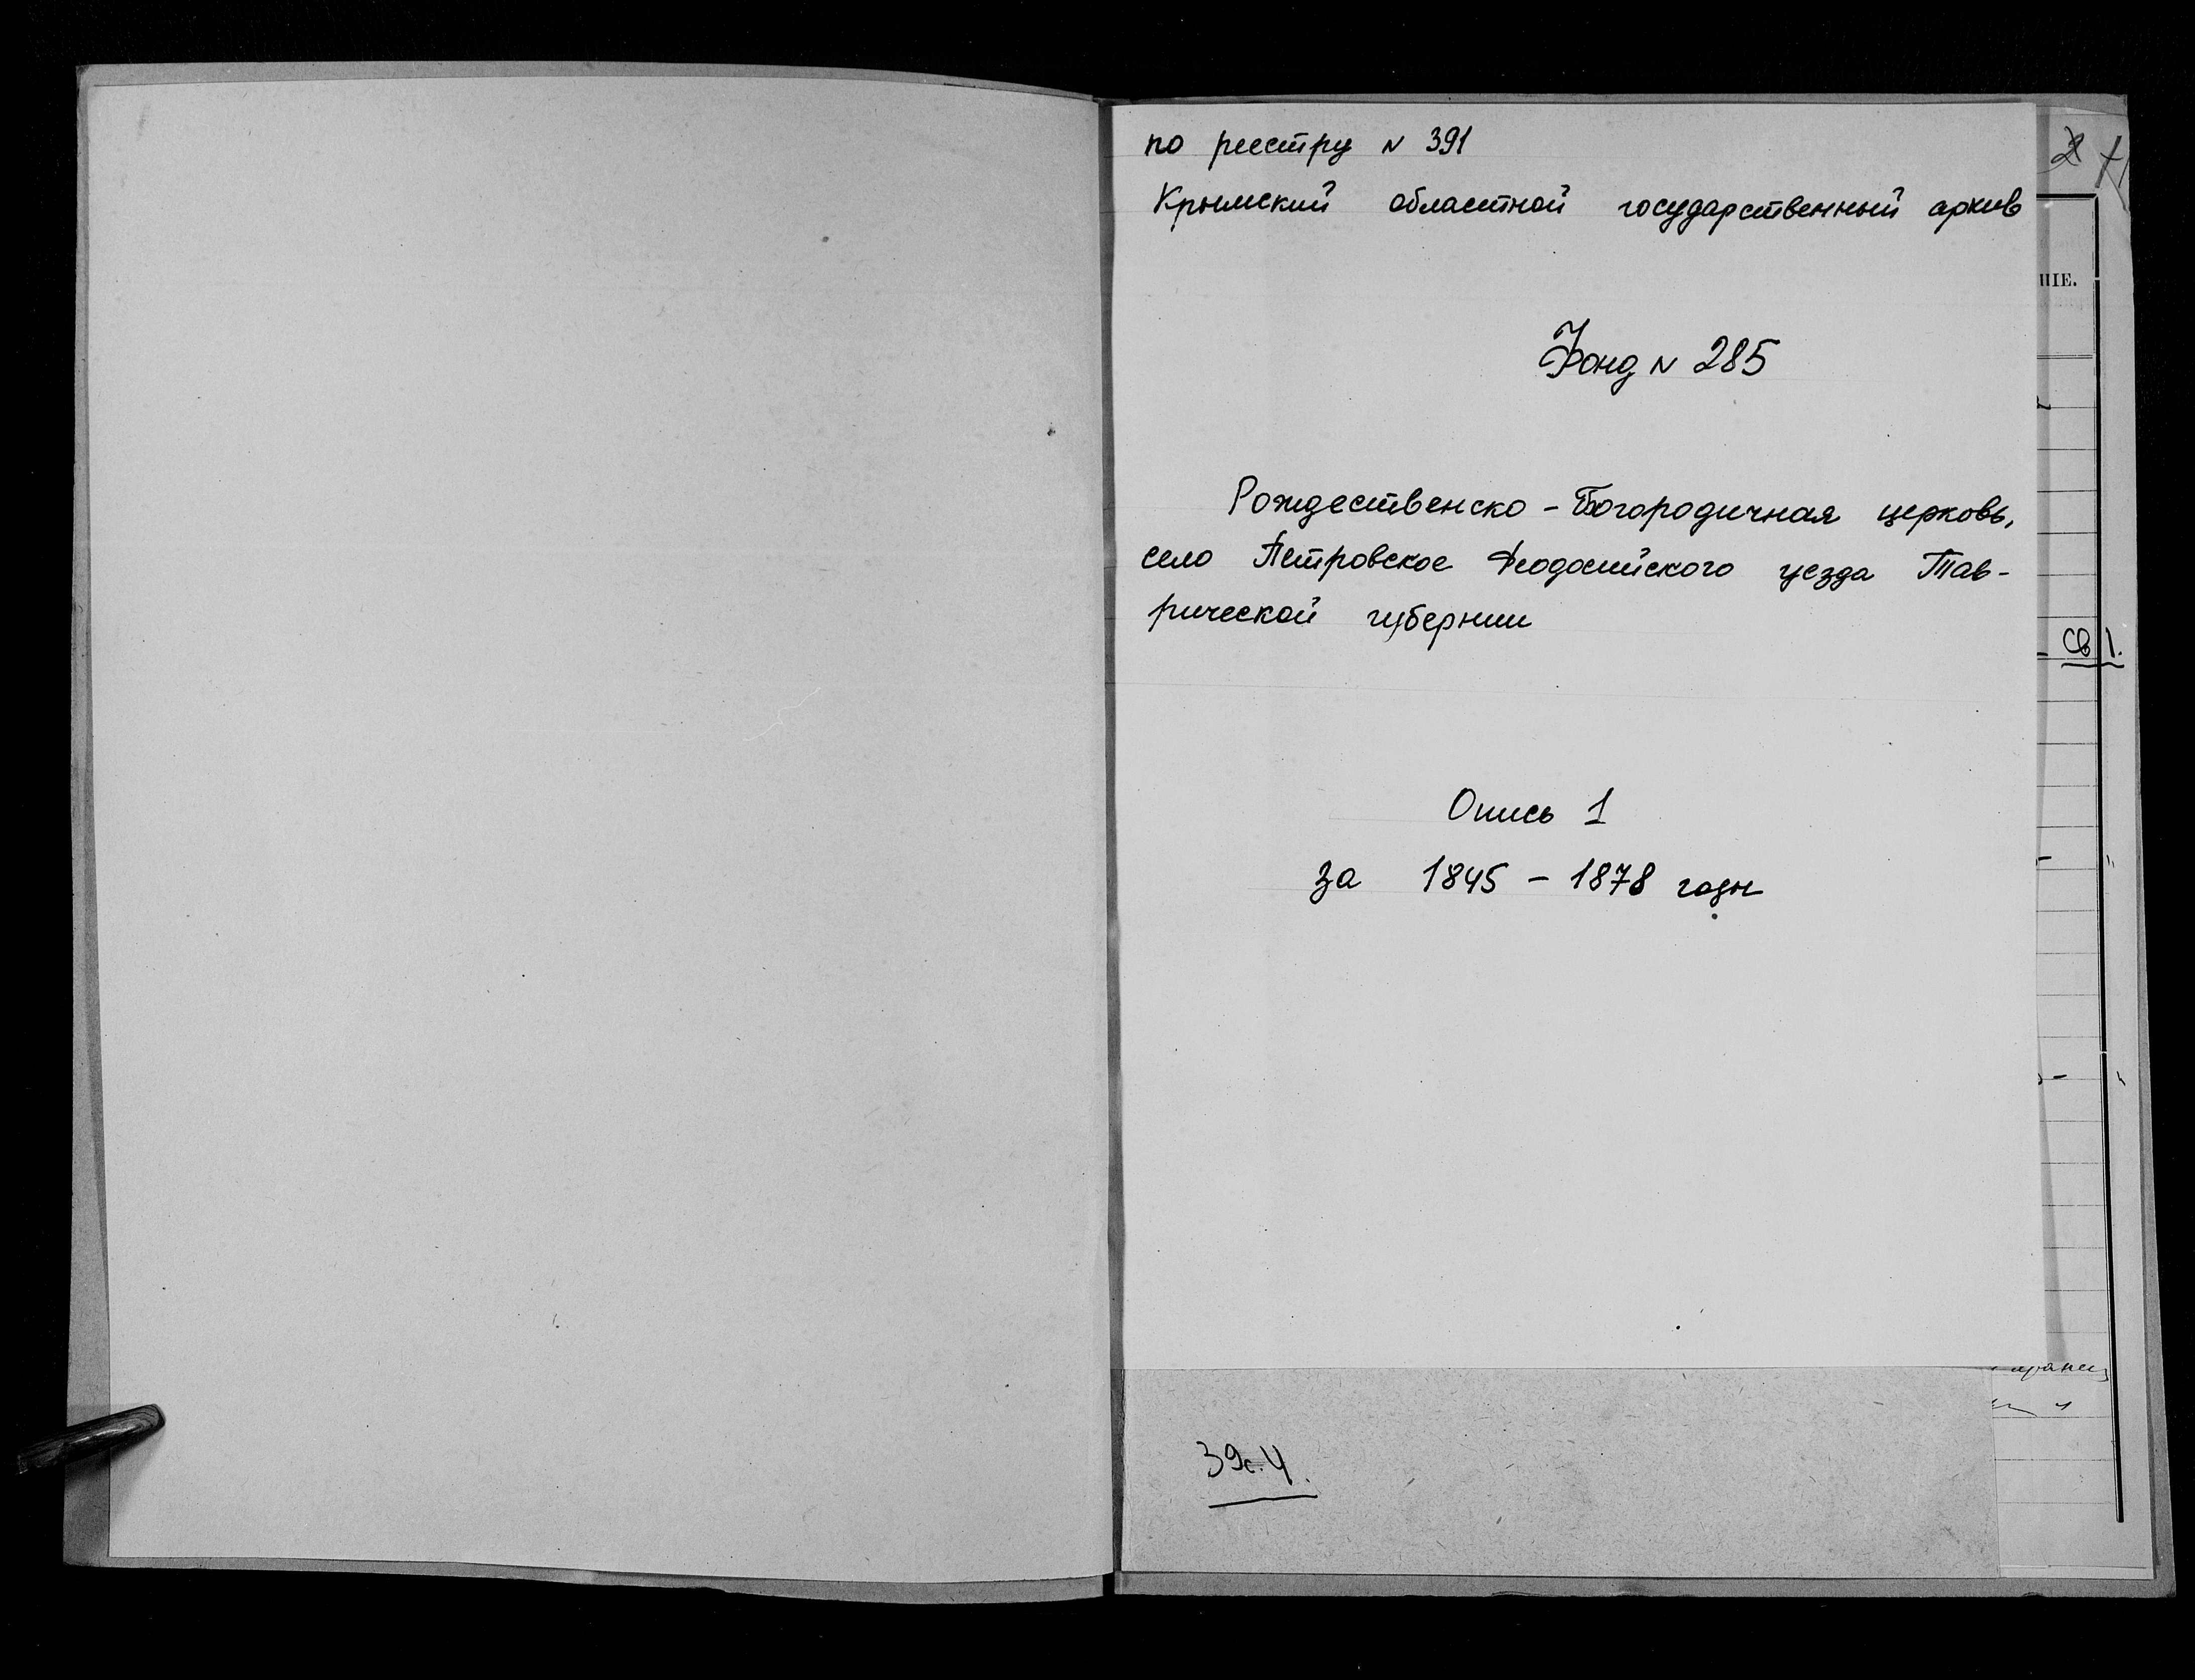 по реестру N 391
Крымский областной государственный архив
Фонд N 285
Рождественско-Богородичная церковь,
село Петровское Феодосийского уезда Тав-
рической губернии
Опись 1
за 1845 - 1878 годы
НІЕ.
Св 1.